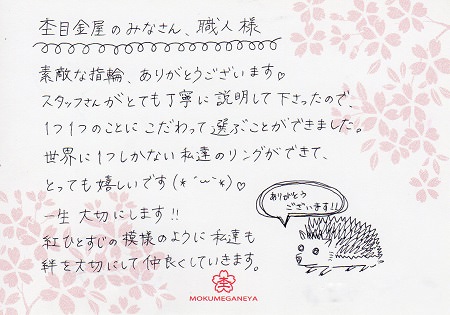 杢目金屋のみなさん、職人様
素敵な指輪、ありがとうございます♡
スタッフさんがとても丁寧に説明して下さったので、
1つ1つのことにこだわって選ぶことができました。
世界に1つしかない私達のリングができて、
とっても嬉しいです(*´︶`*)♡
一生大切にします!!
紅ひとすじの模様のように私達も
絆を大切にして仲良くしていきます。
ありがとう
ございます!!
MOKUMEGANEYA